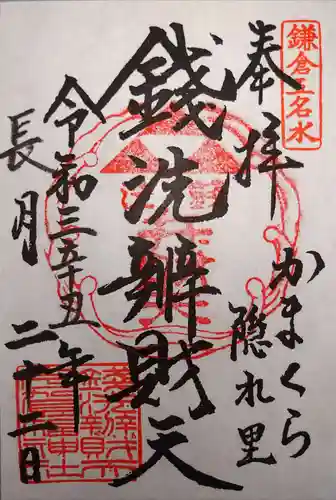 鎌倉五名水
奉拝
かまくら
隠れ里
錢洗辨財天
令和三辛丑年
長月
二十二日